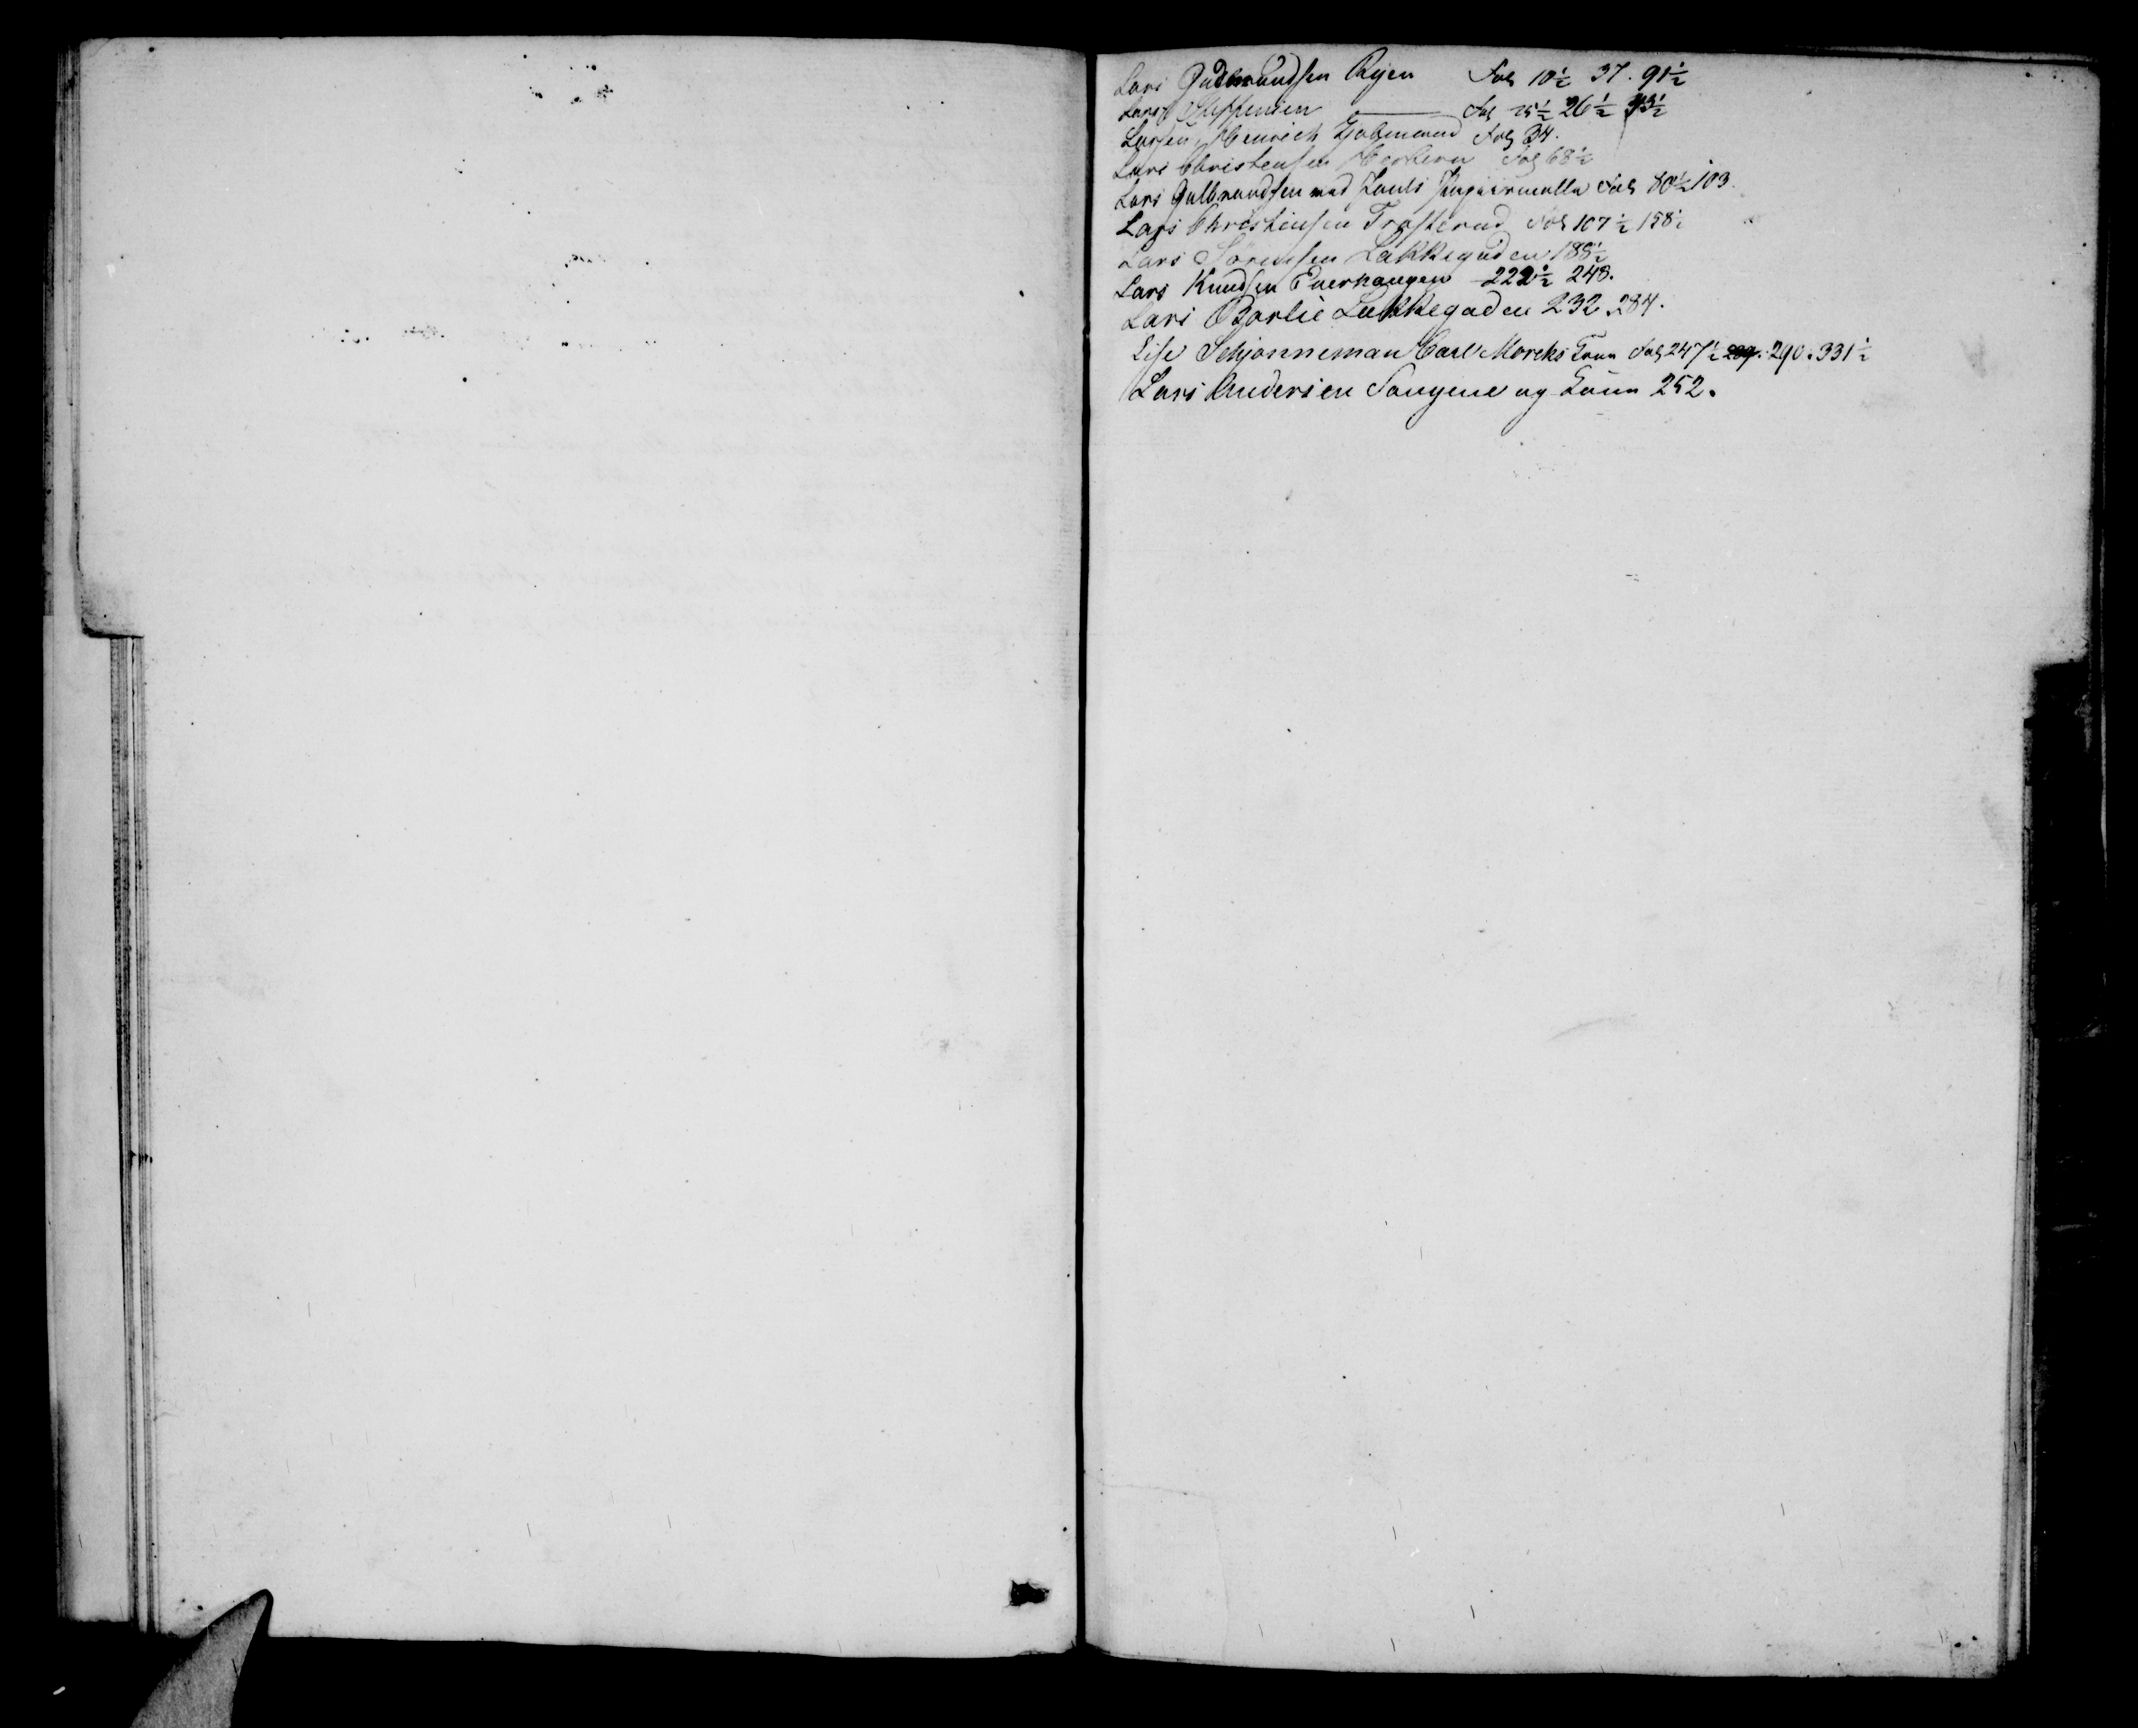 Lars Gudbrandsen Ryen Fol 10½ 37. 91½
Lars Steffensen ——— Fol 25½ 26½ 43½
Larsen, Henrich Fol 34.
Lars Christensen Fol 68½
Lars Gulbrandsen med Fol 80½ 103.
Lars Christensen Trosterud Fol 107½ 158½
Lars Sörensen Lakkegaden 188½
Lars Knudsen Enerhaugen 222½ 248.
Lars Barlie Lakkegaden 232. 284.
Lise Schjönneman Carl Morcks Fol 247½ 290. 331½
Lars Andersen og 252.